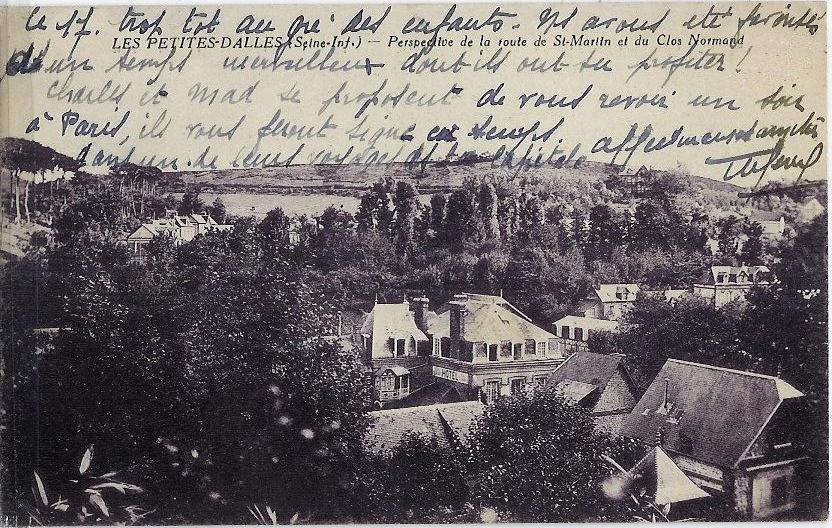 le 17. trop tôt au gré des enfants. Ns avons été favorisés
LES PETITES-DALLES (Seine-Inf.) — Perspective de la route de St-Martin et du Clos Normand
d'un temps merveilleux dont ils ont su profiter !
Charles et Mad se proposent de vous revoir un soir
à Paris, ils vous feront signe en temps
dans un de leurs voyages de la capitale